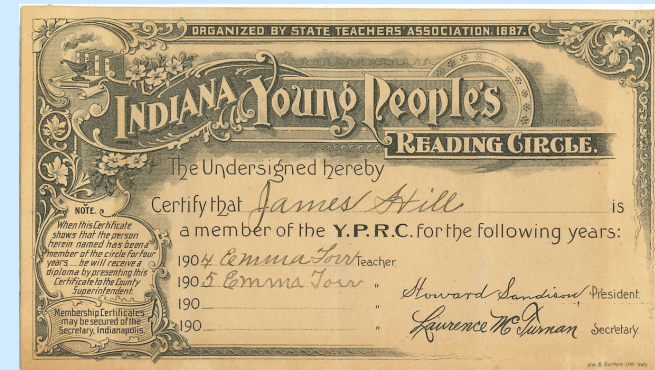 ORGANIZED BY STATE TEACHERS' ASSOCIATION, 1887.
INDIANA Young People's
READING CIRCLE.
The Undersigned hereby
Certify that James Hill is
a member of the Y.P.R.C. for the following years:
1904 Emma Torr Teacher.
1905 Emma Torr "
190 "
190 "
Howard Sandison, President.
Laurence McTurnan Secretary
NOTE.
When this Certificate
shows that the person
herein named has been a
member of the circle for four
years he will receive a
diploma by presenting this
Certificate to the County
Superintendent.
Membership Certificates
may be secured of the
Secretary, Indianapolis.
Wm. B. Burford Lith. Inds.